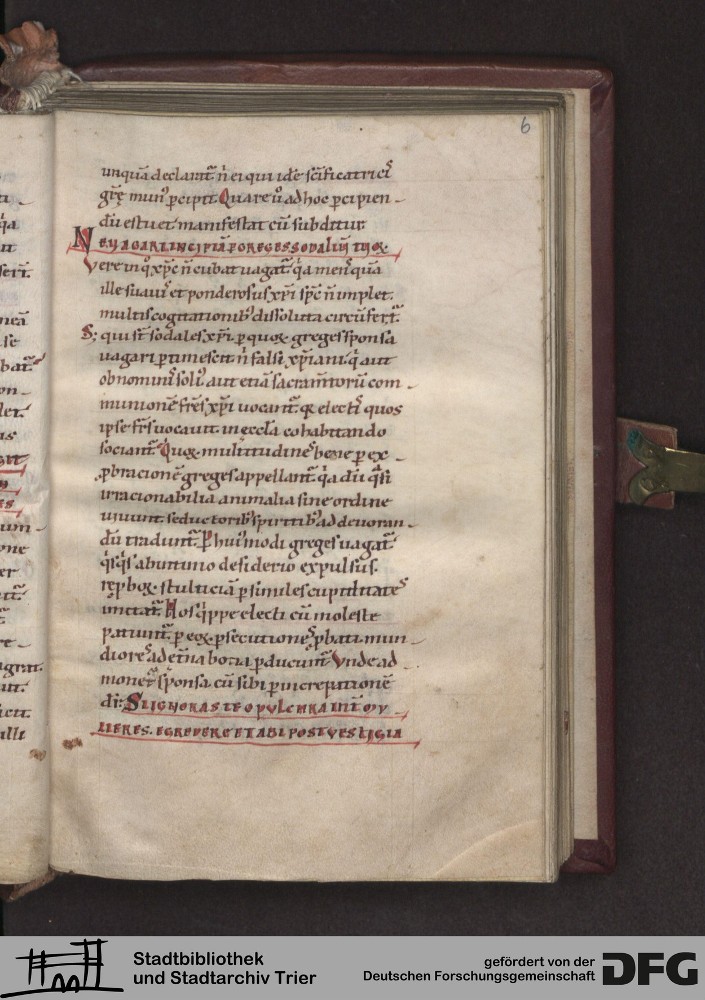 6
unquā declarant̄ n̄ ei qui idē sc̄ificatrici᷒
grē mun᷒ p̄cipit. Quare ū ad hoc p̄cipien-
dū estuet manifestat cū subditur
NE UAGARI INCIPIĀ P GREGES SODALIŪ TUOꝜ.
Vere inq᷒ xp̄c n̄ cubat uagat᷒ q̄a men᷒ quā
ille suaui᷒ et ponderosus xp̄i sp̄c n̄ implet.
multis cogitationib᷒ dissoluta circūfert᷒.
S; qui st̄ sodales xp̄i p quoꝝ greges sponsa
uagari ptimescit n̄ falsi xp̄iani q̄ aut
ob nomini᷒ soli᷒ aut etiā sacram̄torū com-
munionē frēs xp̄i uocant᷒. qꝫ electi᷒ quos
ipse frēs uocauit in eccl̄a cohabitando
sociant᷒. Quoꝝ multitudine᷒ bene p ex-
pbracionē greges appellant᷒ q̄a dū q̄si
irracionabilia animalia sine ordine
uiuunt seductorib᷒ spiritib᷒ ad deuoran-
dū tradunt᷒. P hui᷒modi greges uagat᷒
q̄sq̄s ab intimo desiderio expulsus.
reproboꝝ stulticiā p similes cupiditates
imitat᷒. Hos q̄ppe electi cū moleste
patiunt᷒ p eoꝝ psecutione᷒ pbati mun-
diores ad et̄na bona pducunt᷒. Vnde ad
monet᷒ sponsa cū sibi p increpationē
dr̄: SI IGNORAS TE O PULCHRA INT̄ MU-
LIERES. EGREDERE ET ABI POST UESTIGIA
Stadtbibliothek
und Stadtarchiv Trier
gefördert von der
Deutschen Forschungsgemeinschaft
DFG